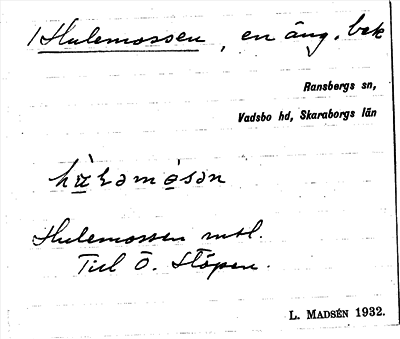 1 Hulemossen, en äng. bek
Ransbergs sn,
Vadsbo hd, Skaraborgs län
Hulemossen mtl.
Till Ö. Stöpen.
L. MADSÉN 1932.